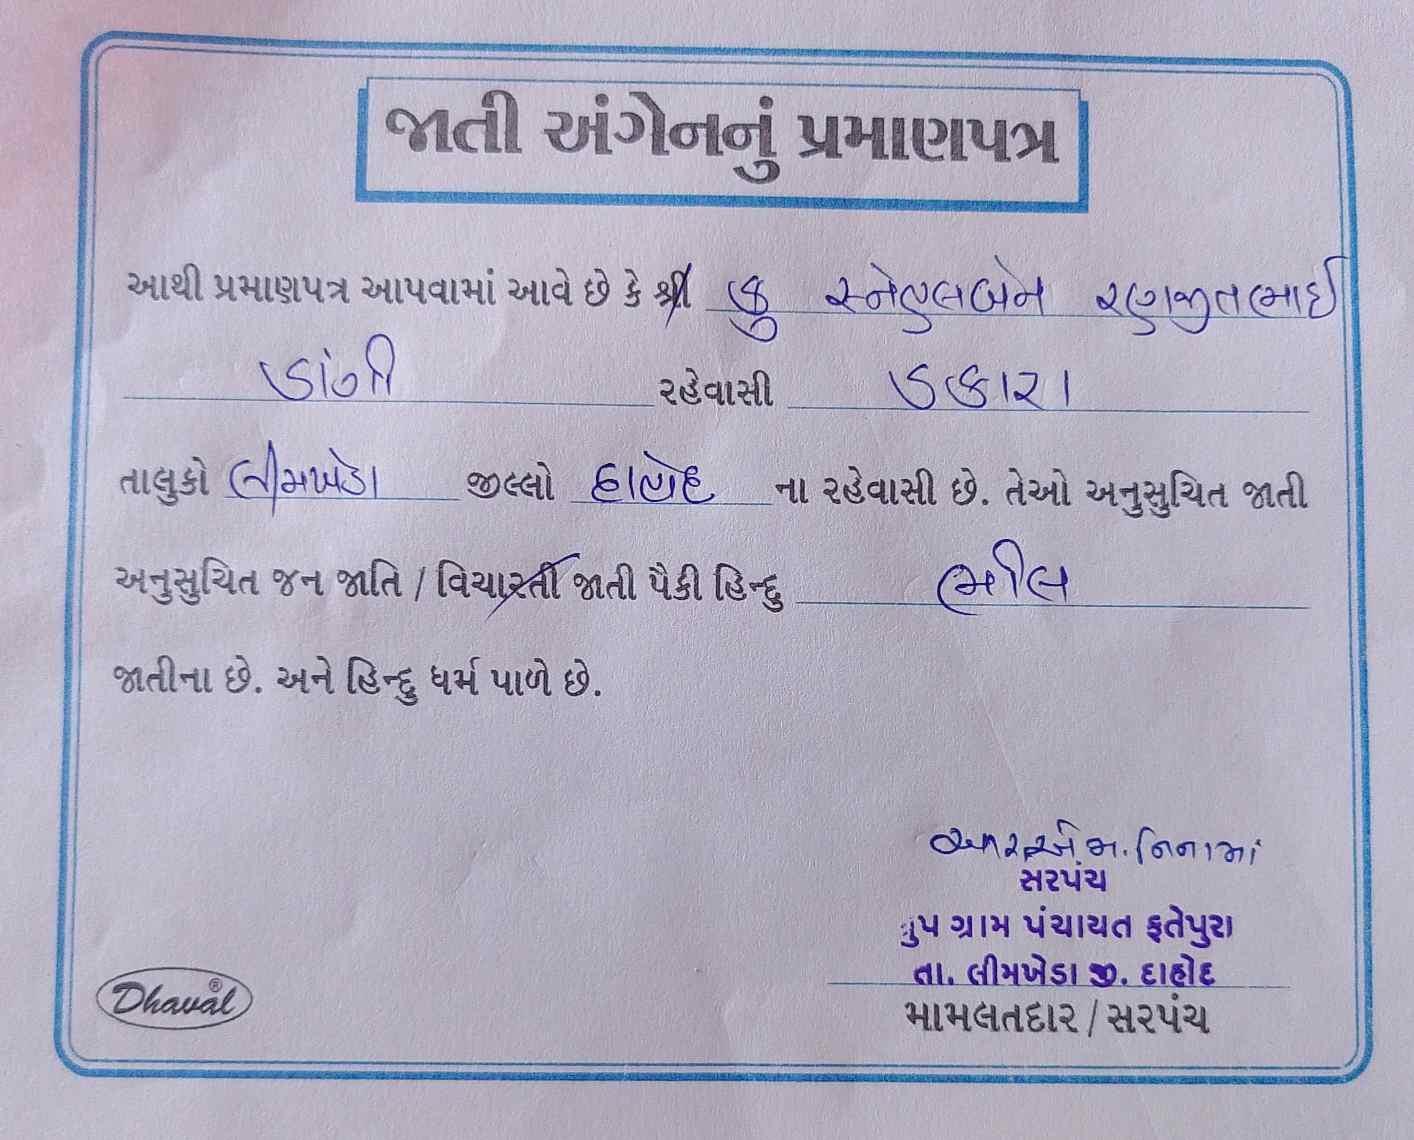 જાતી અંગેનનું પ્રમાણપત્ર
આથી પ્રમાણપત્ર આપવામાં આવે છે કે શ્રી કુ સ્નેહલબેન રણજીતભાઈ
ડાંગી રહેવાસી ડકારા
તાલુકો લીમખેડા જીલ્લો દાહોદ ના રહેવાસી છે. તેઓ અનુસુચિત જાતી
અનુસુચિત જન જાતિ / વિચારતી જાતી પૈકી હિન્દુ ભીલ
જાતીના છે. અને હિન્દુ ધર્મ પાળે છે.
આર.એમ.નિનામાં
સરપંચ
ગ્રુપ ગ્રામ પંચાયત ફતેપુરા
તા. લીમખેડા જી. દાહોદ
મામલતદાર / સરપંચ
Dhaval®